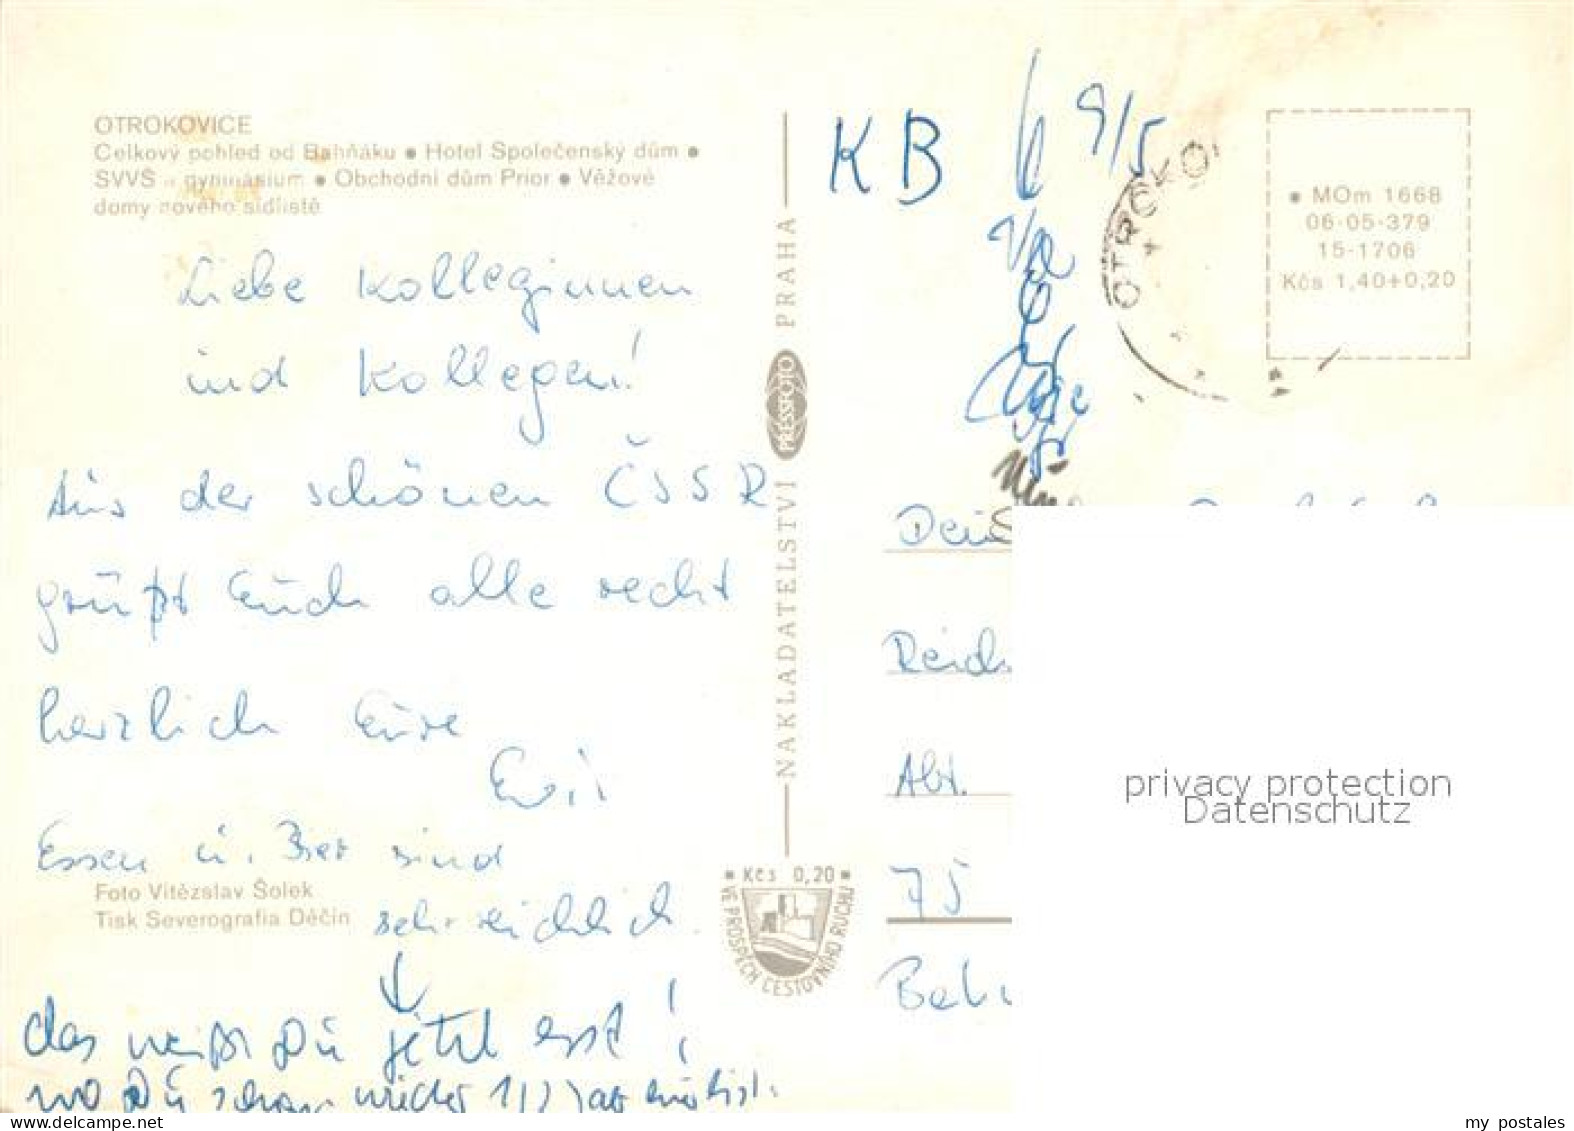 OTROKOVICE
Celkový pohled od Bahňáku • Hotel Společenský dům •
SVVŠ - gymnásium • Obchodní dům Prior • Věžové
domy nového sídliště
Liebe Kolleginnen
und Kollegen!
Aus der schönen ČSSR
grüßt Euch alle recht
herzlich Eure
Evi
Essen u. Bier sind
sehr reichlich.
das weißt Du jetzt erst!
wo Du schon wieder 1/2 Jahr
Foto Vítězslav Šolek
Tisk Severografia Děčín
NAKLADATELSTVÍ PRESSFOTO PRAHA
• Kčs 0,20 •
VE PROSPĚCH CESTOVNÍHO RUCHU
KB
9/5
OTROKO
• MOm 1668
06-05-379
15-1706
Kčs 1,40+0,20
Abt.
75
privacy protection
Datenschutz
my postales